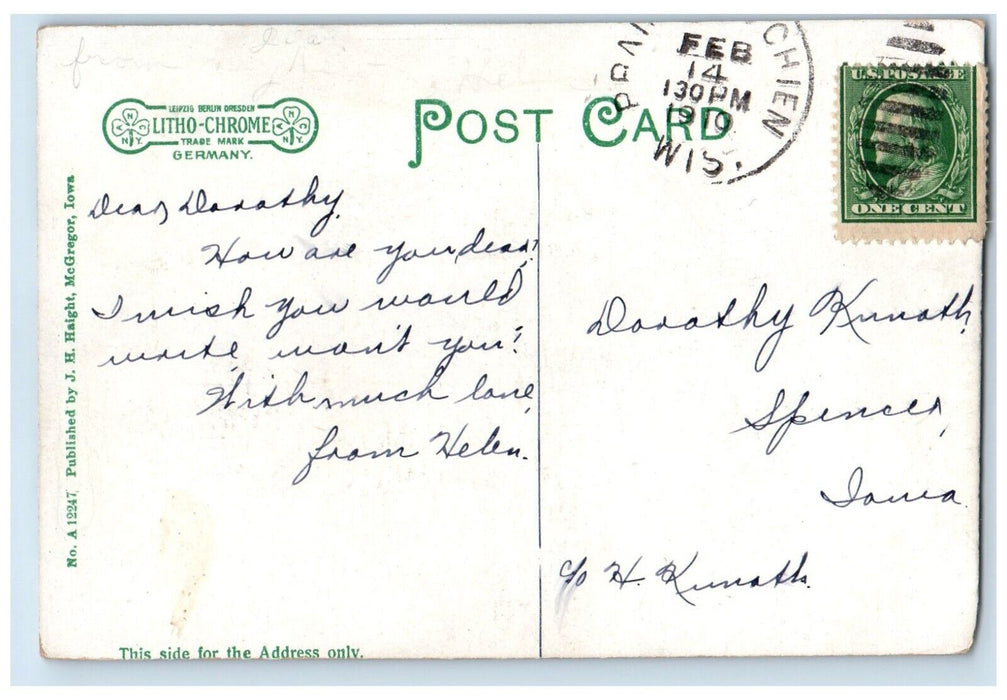 from
LEIPZIG BERLIN DRESDEN
LITHO-CHROME
TRADE MARK
GERMANY.
N Y C
N.Y. N C
POST CARD
PRAI CHIEN
FEB
14
130 PM
1910
WIS.
U.S. POSTAGE
ONE CENT
Dear Dorothy.
How are you dear?
I wish you would
write won't you?
With much love,
from Helen.
Dorothy Kunath,
Spencer,
Iowa.
c/o H. Kunath.
No. A 12247 Published by J. H. Haight, McGregor, Iowa
This side for the Address only.